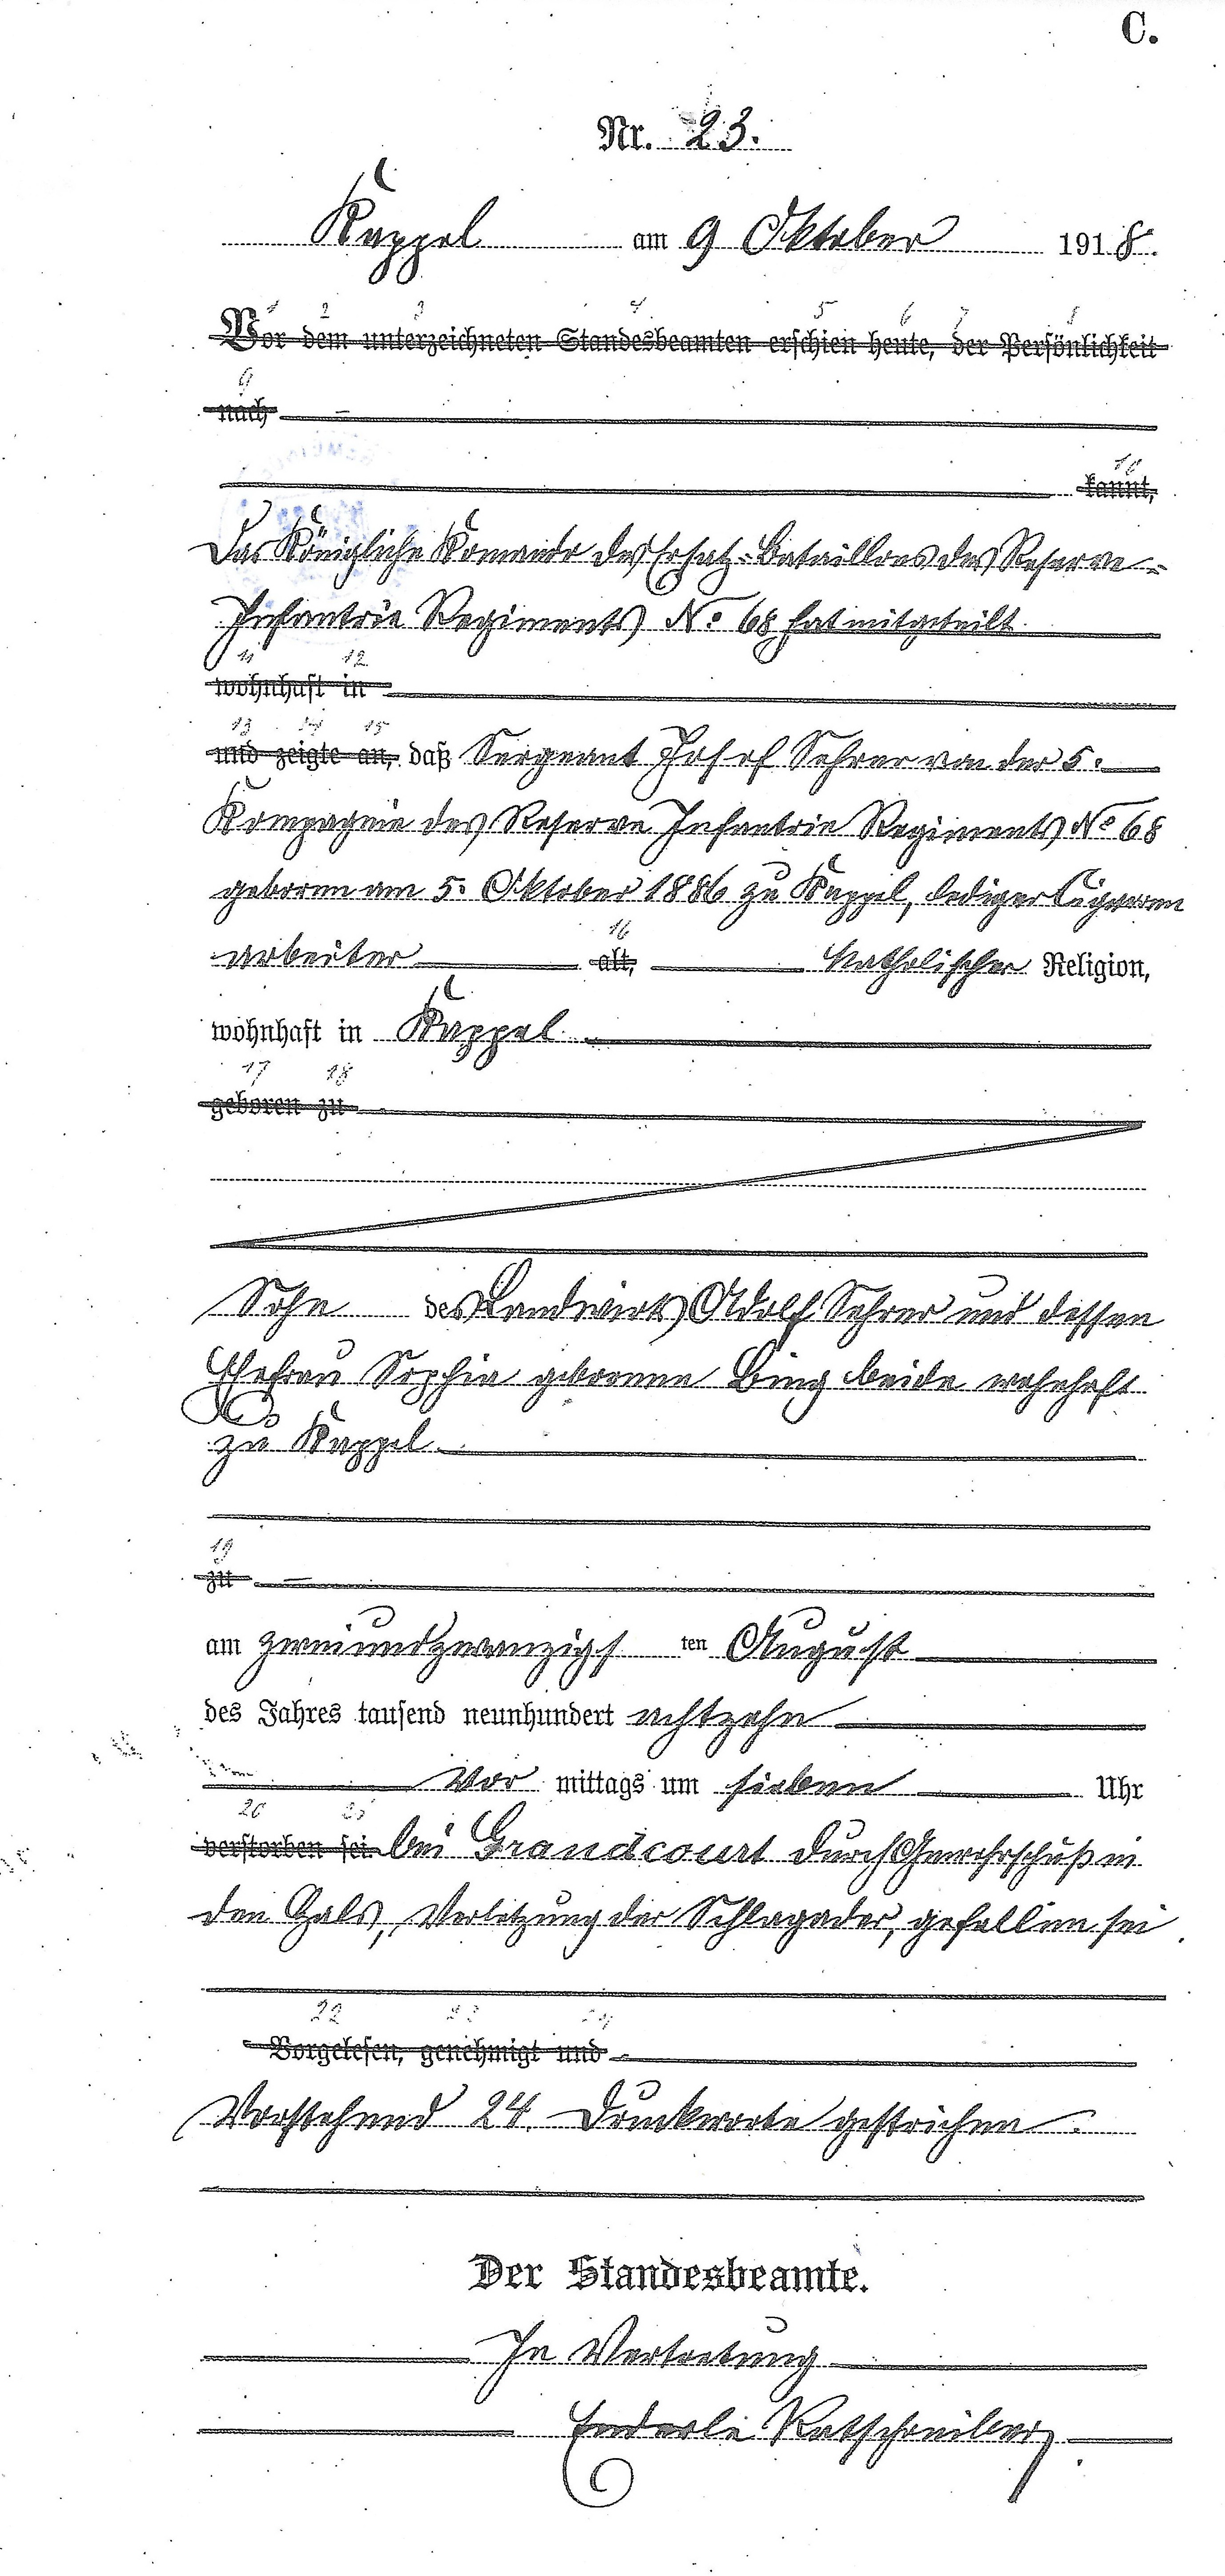 C.
Nr. 23.
Kappel am 9 Oktober 1918.
1 2 3 4 5 6 7 8
Vor dem unterzeichneten Standesbeamten erschien heute, der Persönlichkeit
9
nach
10
kannt,
Das Königliche Komando des Ersatz-Bataillons des Reserve-
Infantrie Regiments No 68 hat mitgeteilt
11 12
wohnhaft in
13 14 15
und zeigte an, daß Sergeant Josef Sehrer von der 5.
Kompagnie des Reserve Infantrie Regiments No 68
geboren am 5. Oktober 1886 zu Kappel, lediger Cigarren
16
arbeiter alt, katholischer Religion,
wohnhaft in Kappel
17 18
geboren zu
Sohn des Landwirts Adolf Sehrer und dessen
Ehefrau Sophia geborenen Bing beide wohnhaft
zu Kappel
19
zu
am zweiundzwanzigs ten August
des Jahres tausend neunhundert achtzehn
Vor mittags um sieben Uhr
20 21
verstorben sei bei Grandcourt durch Gewehrschuß in
den Hals, Verletzung der Schlagader, gefallen sei
22 23 24
Vorgelesen, genehmigt und
Vorstehend 24 Druckworte gestrichen.
Der Standesbeamte.
In Vertretung
Enderle Ratschreiber